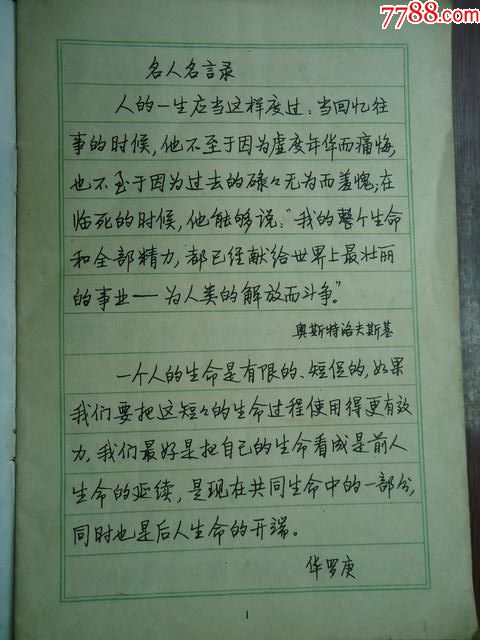 7788.com
名人名言录
人的一生应当这样度过：当回忆往
事的时候，他不至于因为虚度年华而痛悔，
也不至于因为过去的碌々无为而羞愧；在
临死的时候，他能够说：“我的整个生命
和全部精力，都已经献给世界上最壮丽
的事业——为人类的解放而斗争。”
奥斯特洛夫斯基
一个人的生命是有限的、短促的，如果
我们要把这短々的生命过程使用得更有效
力，我们最好是把自己的生命看成是前人
生命的延续，是现在共同生命中的一部分，
同时也是后人生命的开端。
华罗庚
1